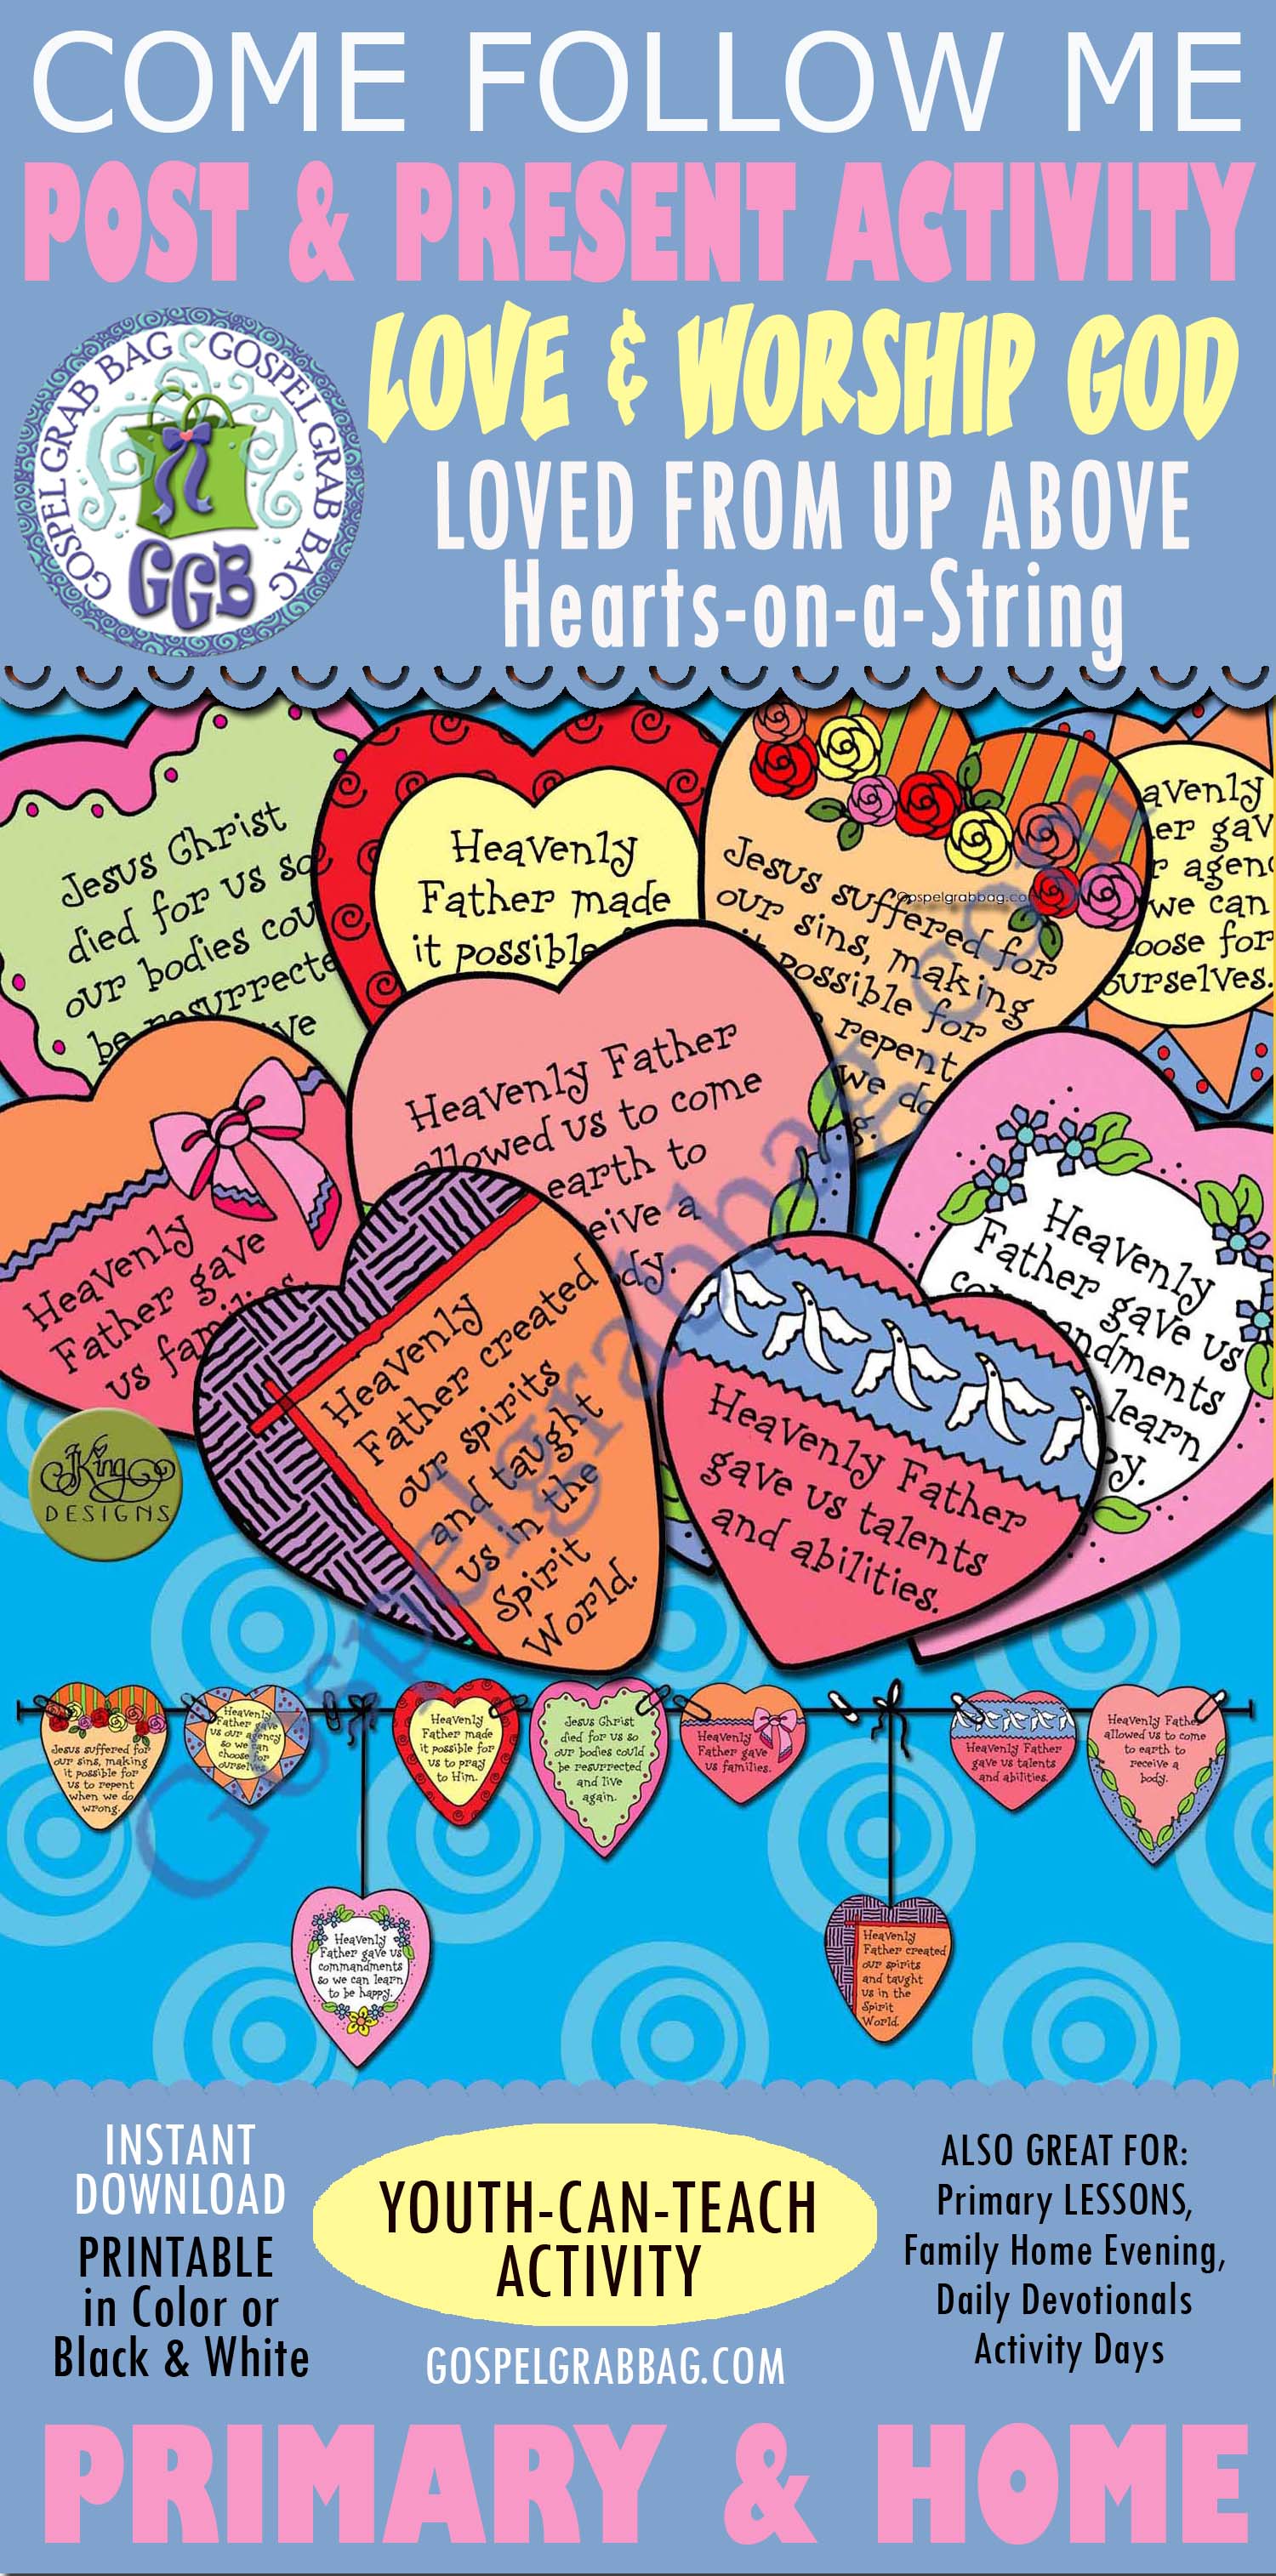 COME FOLLOW ME
POST & PRESENT ACTIVITY
GOSPEL GRAB BAG GOSPEL GRAB BAG
GGB
LOVE & WORSHIP GOD
LOVED FROM UP ABOVE
Hearts-on-a-String
Jesus Christ
died for us so
our bodies cou
be resurrecte
ve
Heavenly
Father made
it possible
Jesus suffered for
our sins, making
it possible for
repent
we do
g.
Gospelgrabbag.com
avenly
er gav
r agenc
we can
oose for
ourselves.
Heavenly
Father gave
us families.
Heavenly Father
allowed us to come
earth to
eive a
dy.
Heavenly
Father gave us
commandments
learn
py.
Heavenly
Father created
our spirits
and taught
us in the
Spirit
World.
Heavenly Father
gave us talents
and abilities.
JKing
DESIGNS
Gospelgrabbag.com
Jesus suffered for
our sins, making
it possible for
us to repent
when we do
wrong.
Heavenly
Father gave
us our agency
so we can
choose for
ourselves.
Heavenly
Father made
it possible for
us to pray
to Him.
Jesus Christ
died for us so
our bodies could
be resurrected
and live
again.
Heavenly
Father gave
us families.
Heavenly Father
gave us talents
and abilities.
Heavenly Father
allowed us to come
to earth to
receive a
body.
Heavenly
Father gave us
commandments
so we can learn
to be happy.
Heavenly
Father created
our spirits
and taught
us in the
Spirit
World.
INSTANT
DOWNLOAD
PRINTABLE
in Color or
Black & White
YOUTH-CAN-TEACH
ACTIVITY
GOSPELGRABBAG.COM
ALSO GREAT FOR:
Primary LESSONS,
Family Home Evening,
Daily Devotionals
Activity Days
PRIMARY & HOME